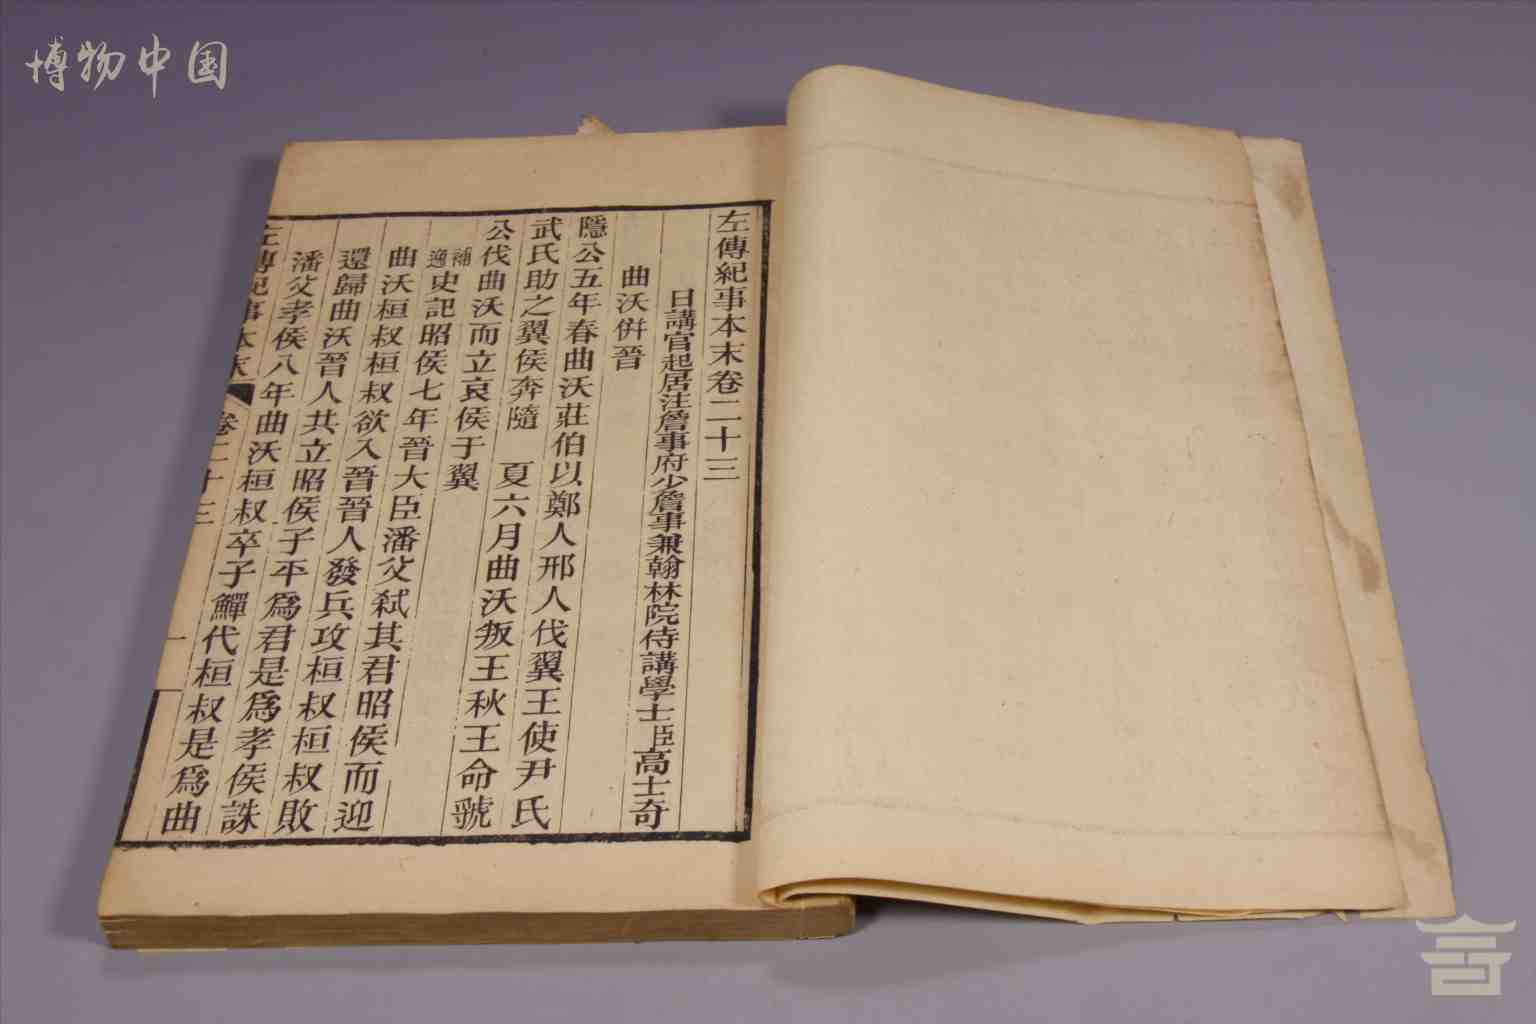 博物中国
左傳紀事本末卷二十三
日講官起居注詹事府少詹事兼翰林院侍講學士臣高士奇
曲沃併晉
隱公五年春曲沃莊伯以鄭人邢人伐翼王使尹氏
武氏助之翼侯奔隨 夏六月曲沃叛王秋王命虢
公伐曲沃而立哀侯于翼
補逸史記昭侯七年晉大臣潘父弒其君昭侯而迎
曲沃桓叔桓叔欲入晉晉人發兵攻桓叔桓叔敗
還歸曲沃晉人共立昭侯子平爲君是爲孝侯誅
潘父孝侯八年曲沃桓叔卒子鱓代桓叔是爲曲
左傳紀事本末 卷二十三 一